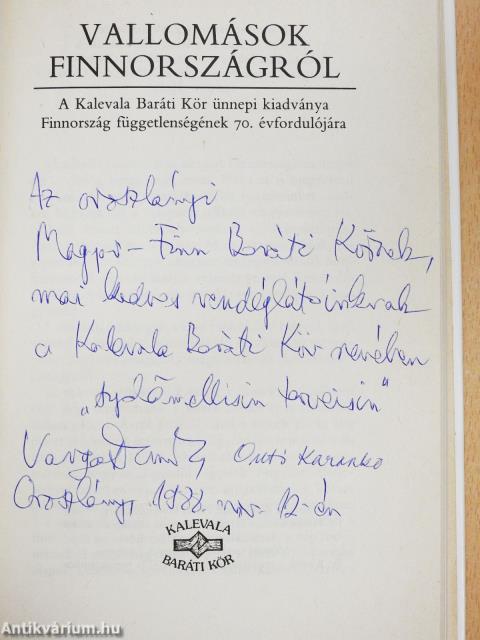 VALLOMÁSOK
FINNORSZÁGRÓL
A Kalevala Baráti Kör ünnepi kiadványa
Finnország függetlenségének 70. évfordulójára
Az oroszlányi
Magyar-Finn Baráti Körnek,
mai kedves vendéglátóinknak
a Kalevala Baráti Kör nevében
„sydämellisin terveisin"
Varga Domokos Outi Karanko
Oroszlány, 1988. nov. 12-én
KALEVALA
BARÁTI KÖR
Antikvárium.hu